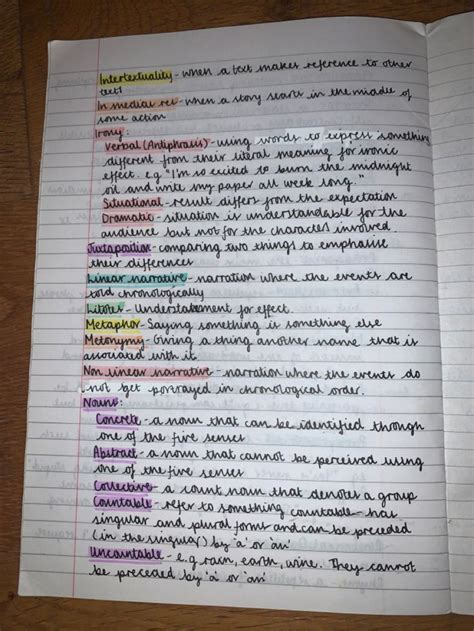 Intertextuality - when a text makes reference to other
text!
In medias res - when a story starts in the middle of
some action
Irony:
Verbal (Antiphrasis) - using words to express something
different from their literal meaning for ironic
effect. e.g "I'm so excited to burn the midnight
oil and write my paper all week long."
Situational - result differs from the expectation
Dramatic - situation is understandable for the
audience but not for the characters involved.
Juxtaposition - comparing two things to emphasise
their differences
Linear narrative - narration where the events are
told chronologically
Litotes - Understatement for effect.
Metaphor - Saying something is something else
Metonymy - Giving a thing another name that is
associated with it.
Non linear narrative - narration where the events do
not get portrayed in chronological order.
Nouns:
Concrete - a noun that can be identified though
one of the five senses
Abstract - a noun that cannot be perceived using
one of the five senses
Collective - a count noun that denotes a group
Countable - refer to something countable - has
singular and plural forms and can be preceded
(in the singular) by 'a' or 'an'
Uncountable - e.g rain, earth, wine. They cannot
be preceded by 'a' or 'an'